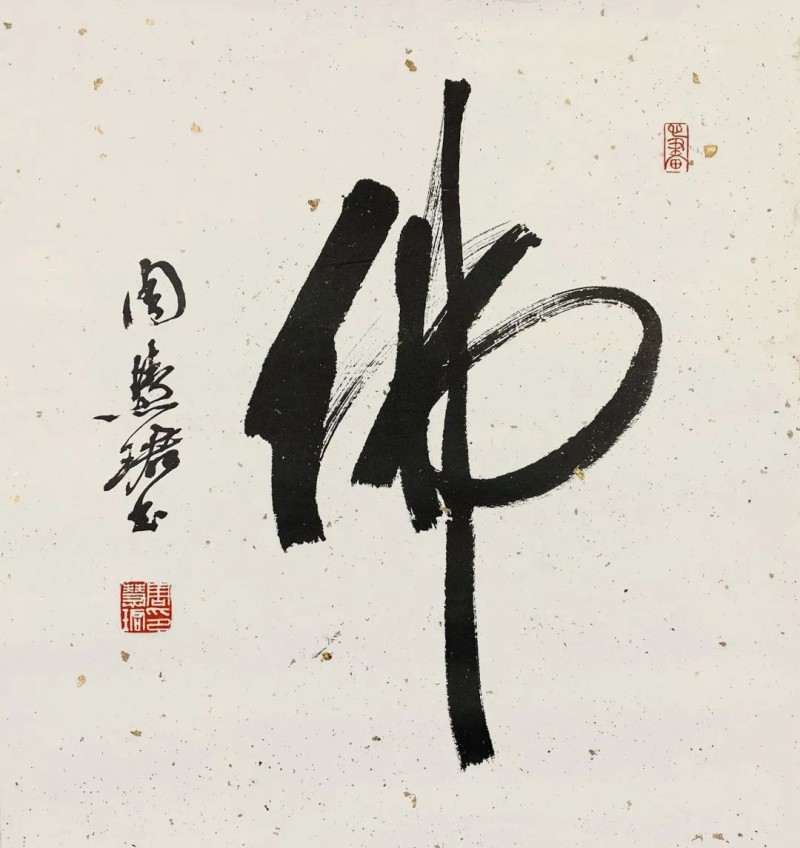 佛
周慧珺书
周慧珺印